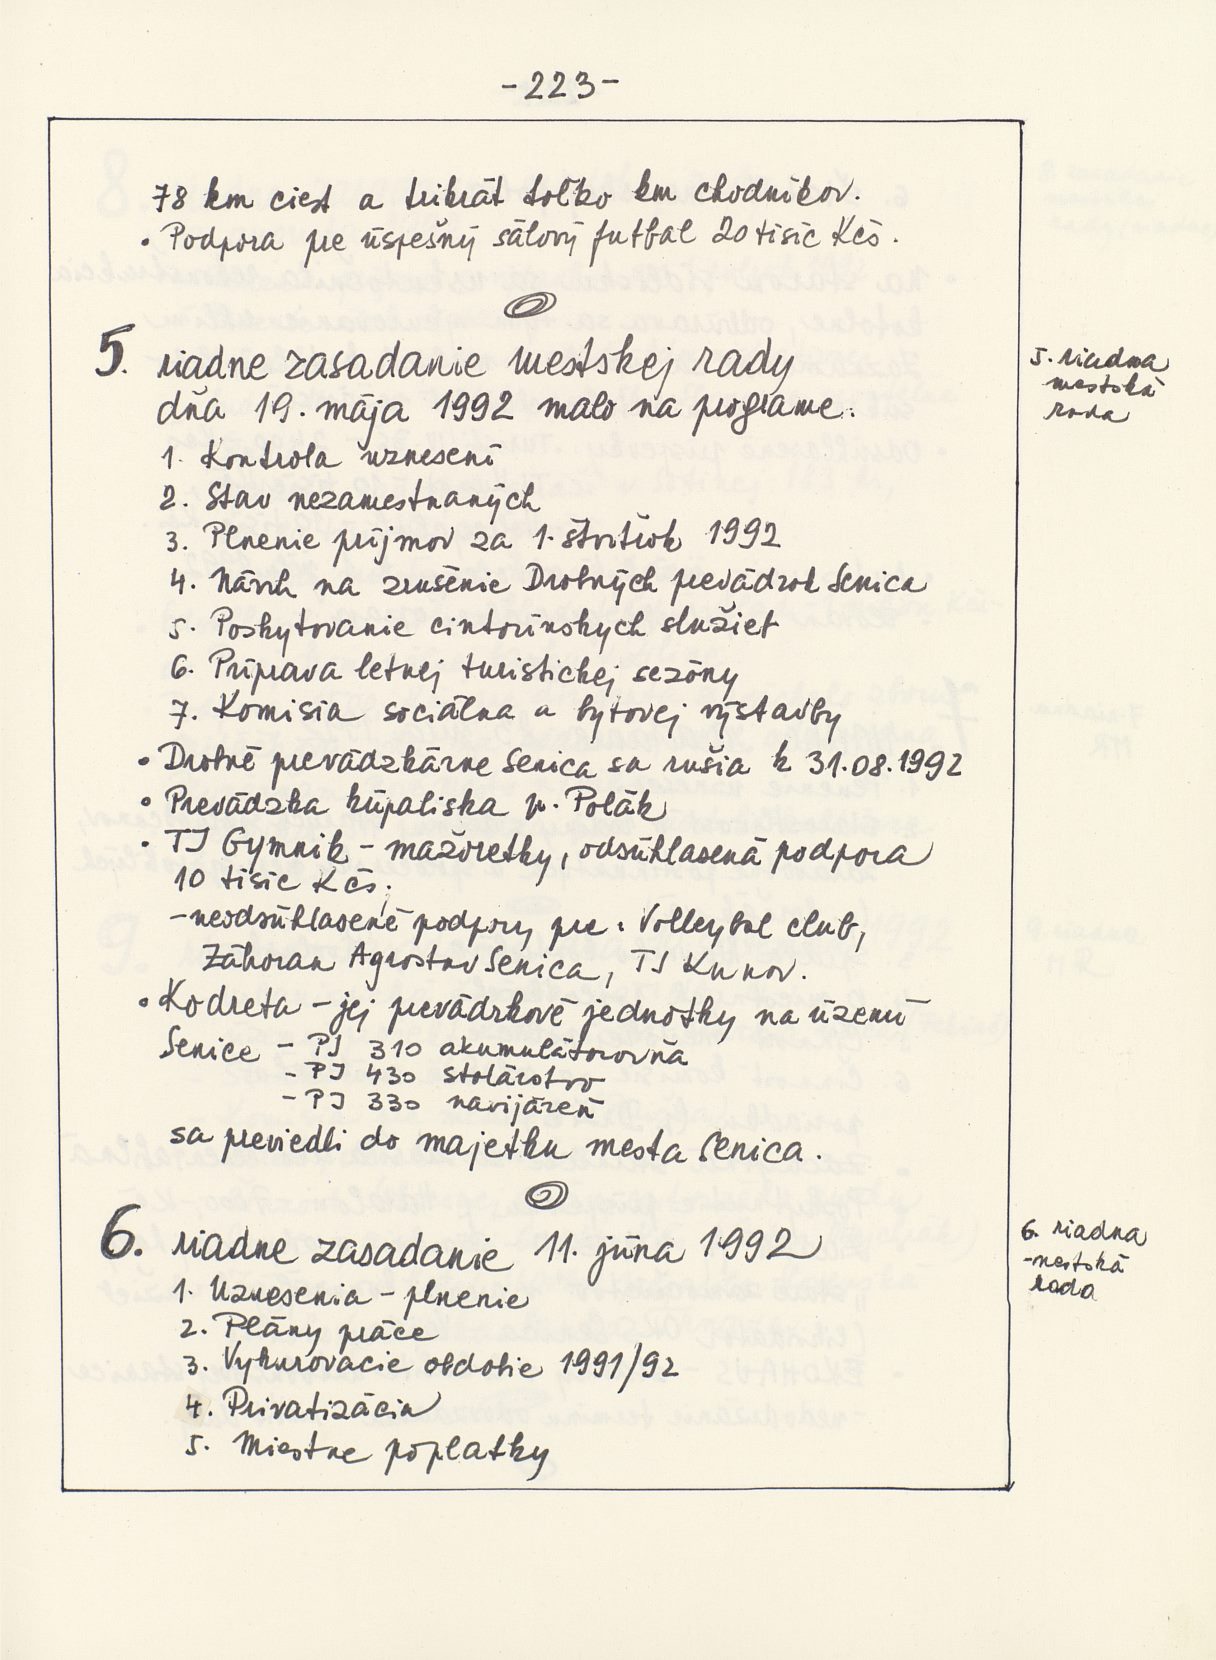 -223-
78 km ciest a trikrát toľko km chodníkov.
• Podpora pre úspešný sálový futbal 20 tisíc Kčs.
5. riadne zasadanie mestskej rady
dňa 19. mája 1992 malo na programe:
5. riadna
mestská
rada
1. Kontrola uznesení
2. Stav nezamestnaných
3. Plnenie príjmov za 1. štvrťrok 1992
4. Návrh na zrušenie Drobných prevádzok Senica
5. Poskytovanie cintorínskych služieb
6. Príprava letnej turistickej sezóny
7. Komisia sociálna a bytovej výstavby
• Drobné prevádzkárne Senica sa rušia k 31.08.1992
• Prevádzka kúpaliska p. Polák
• TJ Gymnik - mažoretky, odsúhlasená podpora
10 tisíc Kčs.
- neodsúhlasené podpory pre: Volleybal club,
Záhoran Agrostav Senica, TJ Kunov.
• Kodreta - jej prevádzkové jednotky na území
Senice - PJ 310 akumulátorovňa
- PJ 430 stolárstvo
- PJ 330 navijáreň
sa previedli do majetku mesta Senica.
6. riadne zasadanie 11. júna 1992
6. riadna
- mestská
rada
1. Uznesenia - plnenie
2. Plány práce
3. Vykurovacie obdobie 1991/92
4. Privatizácia
5. Miestne poplatky